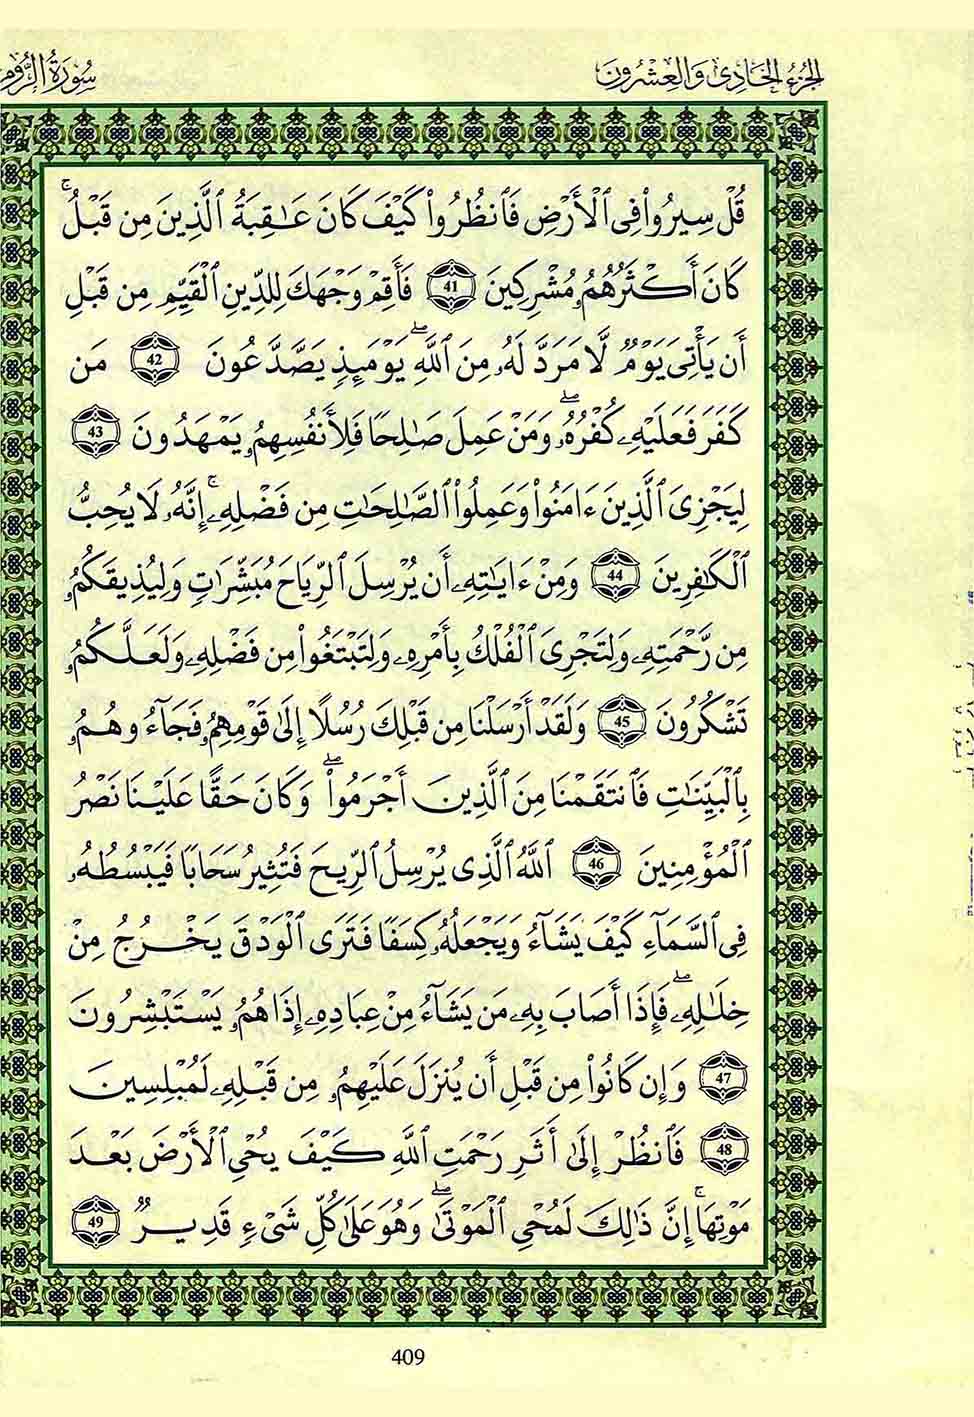 الجزء الحادي والعشرون
سورة الروم
قُلْ سِيرُواْ فِى ٱلْأَرْضِ فَٱنظُرُواْ كَيْفَ كَانَ عَـٰقِبَةُ ٱلَّذِينَ مِن قَبْلُۚ
كَانَ أَكْثَرُهُمُۥ مُشْرِكِينَ 41 فَأَقِمْ وَجْهَكَ لِلدِّينِ ٱلْقَيِّمِ مِن قَبْلِ
أَن يَأْتِىَ يَوْمٌ لَّا مَرَدَّ لَهُۥ مِنَ ٱللَّهِۖ يَوْمَئِذٍ يَصَّدَّعُونَ 42 مَن
كَفَرَ فَعَلَيْهِۦ كُفْرُهُۥۖ وَمَنْ عَمِلَ صَـٰلِحًا فَلِأَنفُسِهِمُۥ يَمْهَدُونَ 43
لِيَجْزِىَ ٱلَّذِينَ ءَامَنُواْ وَعَمِلُواْ ٱلصَّـٰلِحَـٰتِ مِن فَضْلِهِۦۚ إِنَّهُۥ لَا يُحِبُّ
ٱلْكَـٰفِرِينَ 44 وَمِنْ ءَايَـٰتِهِۦ أَن يُرْسِلَ ٱلرِّيَاحَ مُبَشِّرَٰتٍ وَلِيُذِيقَكُمُۥ
مِن رَّحْمَتِهِۦ وَلِتَجْرِىَ ٱلْفُلْكُ بِأَمْرِهِۦ وَلِتَبْتَغُواْ مِن فَضْلِهِۦ وَلَعَلَّكُمُۥ
تَشْكُرُونَ 45 وَلَقَدْ أَرْسَلْنَا مِن قَبْلِكَ رُسُلًا إِلَىٰ قَوْمِهِمُۥ فَجَآءُوهُمُۥ
بِٱلْبَيِّنَـٰتِ فَٱنتَقَمْنَا مِنَ ٱلَّذِينَ أَجْرَمُواْۖ وَكَانَ حَقًّا عَلَيْنَا نَصْرُ
ٱلْمُؤْمِنِينَ 46 ٱللَّهُ ٱلَّذِى يُرْسِلُ ٱلرِّيحَ فَتُثِيرُ سَحَابًا فَيَبْسُطُهُۥ
فِى ٱلسَّمَآءِ كَيْفَ يَشَآءُ وَيَجْعَلُهُۥ كِسَفًا فَتَرَى ٱلْوَدْقَ يَخْرُجُ مِنْ
خِلَـٰلِهِۦۖ فَإِذَا أَصَابَ بِهِۦ مَن يَشَآءُ مِنْ عِبَادِهِۦ إِذَا هُمُۥ يَسْتَبْشِرُونَ
47 وَإِن كَانُواْ مِن قَبْلِ أَن يُنزَلَ عَلَيْهِمُۥ مِن قَبْلِهِۦ لَمُبْلِسِينَ
48 فَٱنظُرْ إِلَىٰ أَثَرِ رَحْمَتِ ٱللَّهِ كَيْفَ يُحْىِ ٱلْأَرْضَ بَعْدَ
مَوْتِهَاۚ إِنَّ ذَٰلِكَ لَمُحْىِ ٱلْمَوْتَىٰۖ وَهُوَ عَلَىٰ كُلِّ شَىْءٍ قَدِيرٌ 49
409